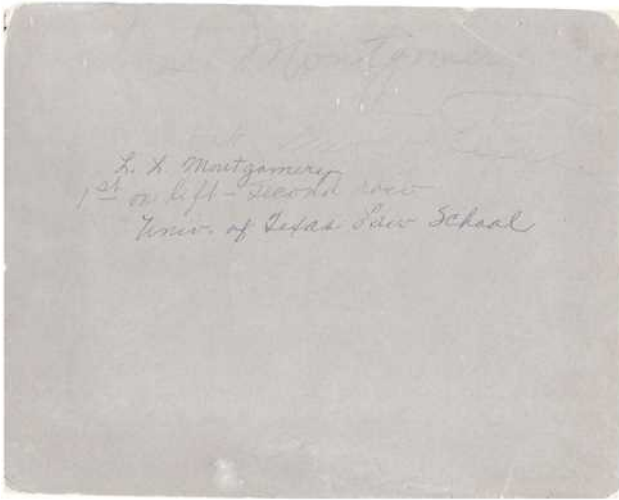 Montgomery
L. L. Montgomery
1st on left - Second row
Univ. of Texas Law School